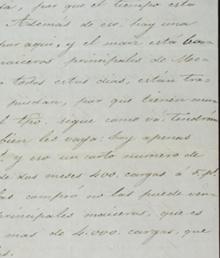 da, por que el tiempo esta
Además de eso, hay una
por aqui, y el maiz está
maiceros principales de
todos estos dias, están tra
puedan, por que tienen
el tpo. sigue como va, tendrán
bien les vaya: hay apenas
y eso un corto numero de
de dos meses 400. cargas á 5. ps.
las compró no las puede ven
principales maiceros, que es
mas de 4.000. cargas, que